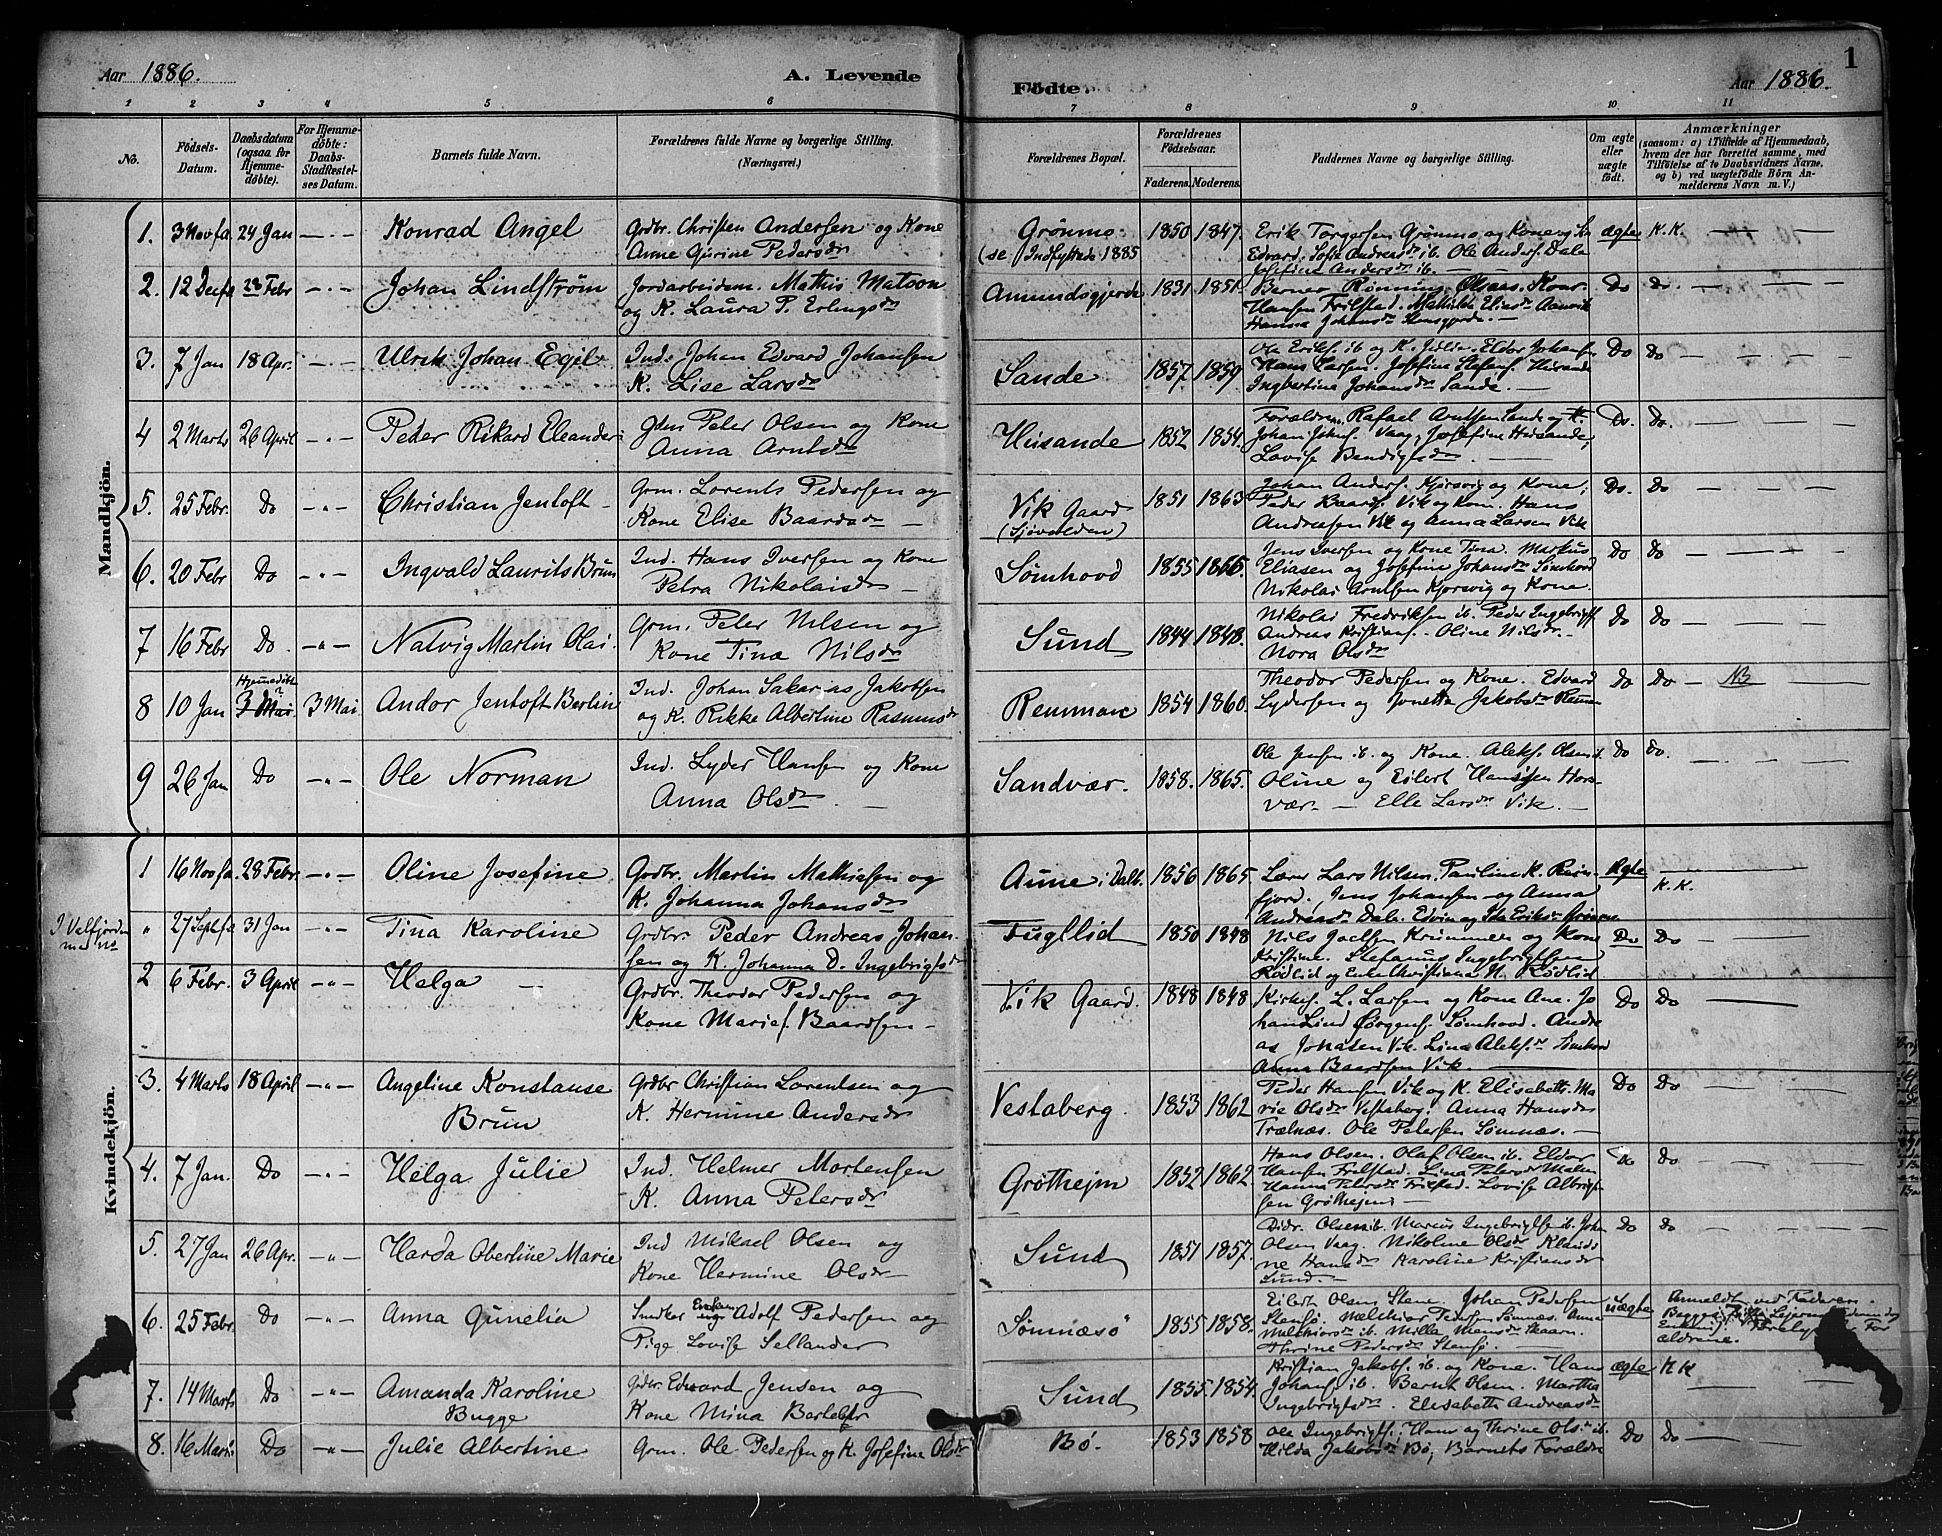 Aar 1886. A. Levende Födte. Aar 1886. 1
1 2 3 4 5 6 7 8 9 10 11
No.
Födsels-Datum.
Daabsdatum (ogsaa for Hjemmedöbte).
For Hjemmedöbte: Daabs-Stadfæstelses Datum.
Barnets fulde Navn.
Forældrenes fulde Navne og borgerlige Stilling. (Næringsvei.)
Forældrenes Bopæl.
Forældrenes Födselsaar.
Faderens. Moderens.
Faddernes Navne og borgerlige Stilling.
Om ægte eller uægte födt.
Anmærkninger
(saasom: a) i Tilfælde af Hjemmedaab, hvem der har forrettet samme, med Tilföielse af to Daabsvidners Navne, og b) ved uægtefödte Börn Anmelderens Navn m. V.)
Mandkjön.
1. 3 Nov fa 24 Jan Konrad Angel Grdbr. Christen Andersen og Kone Anne Gurine Pedersdr Grönmo (se Indflyttede 1885 1850 1847. Erik Torgersen Grönmo og Kone Edvard. Sofie Andreasdr ib. Ole Anders. Dale Josefine Andersdr ib. ægte K.K.
2. 12 Dec fa 28 Febr Johan Lindström Jordarbeidem. Mathis Matson og K. Laura P. Erlingsdr Amundsgjerde 1831 1851 Berner Rönning Hansen Frilstad. Mathilde Eliasdr Hanna Johansdr Do Do
3. 7 Jan 18 Apr. Ulrik Johan Egil Ind. Johan Edvard Johansen K. Lise Larsdr Sande 1857 1859 Ole Eriks. ib og K. Eldor Johansen Hans Larsen. Josefine Stefans. Husande Ingbertine Johansdr Sande. Do Do
4 2 Marts 26 April Peder Rikard Eleander Gdm Peter Olsen og Kone Anna Arntsdr Husande 1852 1854. Forældrene, Rafael Arntsen Sande og K. Johan Jakobs. Vaag, Josefine Husande, Lovise Bendigtsdr Do. Do.
5. 25 Febr. Do Christian Jentoft Grm. Lorents Pedersen og Kone Elise Baardsdr Vik Gaard (Sjövolden) 1851 1863 Johan Anders. Kjörsvig og Kone, Peder Baards. Vik og Kone. Hans Andreasen Vik og Anna Larsen Vik Do. Do
6. 20 Febr Do Ingvald Laurits Brun Ind. Hans Iversen og Kone Petra Nikolaisdr Sömhovd 1855 1865. Jens Iversen og Kone Tina. Markus Eliasen og Josefine Johansdr Sömhovd Nikolai Arntsen Kjörsvig og Kone. Do Do
7 16 Febr Do Natvig Martin Olai Grm. Peter Nilsen og Kone Tina Nilsdr Sund 1844 1848. Nikolai Fredriksen ib. Peder Ingebrigts. Andreas Kristians. Oline Nilsdr Nora Olsdr Do Do
8 10 Jan Hjemmedöbt 3 Mai. 3 Mai Andor Jentoft Berlin Ind. Johan Sakarias Jakobsen og K. Rikke Albertine Rasmusdr Remman 1854 1860. Theodor Pedersen og Kone. Edvard Lydersen og Jonetta Jakobsdr Do Do NB
9 26 Jan Do Ole Norman Ind. Lyder Hansen og Kone Anna Olsdr Sandvær. 1858. 1865. Ole Jensen ib. og Kone. Aleks. Olsen ib. Oline og Eilert Hanssen Horsvær Elle Larsdr Vik. Do do.
Kvindekjön.
1 16 Nov fa 28 Febr. Oline Josefine Grdbr. Martin Mathiesen og K. Johanna Johansdr Aune i Dalb. 1856 1865 Lærer Lars Nilsen. Pauline K. Reinfjord, Jens Johansen og Anna Andreasdr Dale. Edvin og Ida Eriksdr Grönmo Ægte K.K.
I Velfjorden med No " 27 Sept fa 31 Jan Tina Karoline Grdbr. Peder Andreas Johansen og K. Johanna D. Ingebrigtsdr Fugllid 1850 1848 Nils Joelsen Krummen og Kone Kristine. Stefanus Ingebrigtsen Rödlid og Enke Christiana N. Rödlid Do Do
2 6 Febr. 3 April Helga Grdbr. Theodor Pedersen og Kone Marie f. Baardsen Vik Gaard. 1848 1848 Kirkes. L. Larsen og Kone Ane. Johan Lind Jörgens. Sömhovd. Andreas Jonasen Vik. Lina Aleksdr Sömhovd Anna Baardsen Vik. Do Do
3. 4 Marts 18 April Angeline Konstanse Brun Grdbr Christian Lorentsen og K. Hermine Andersdr Vestaberg. 1853 1862 Peder Hansen Vik og K. Elisabeth. Marie Olsdr Vestaberg. Anna Hansdr Trælnæs. Ole Petersen Sömnæs. Do Do
4. 7 Jan. Do Helga Julie Ind. Helmer Mortensen K. Anna Petersdr Gröthejm 1852 1862. Hans Olsen. Olaf Olsen ib. Eldor Hansen Frilstad. Lina Petersdr Hanna Petersdr Frilstad. Lovise Albrigtsen Gröthejm Do Do
5. 27 Jan 26 Apr. Harda Obertine Marie Ind Mikael Olsen og Kone Hermine Olsdr Sund 1851 1857. Didr. Olsen ib. Marcus Ingebrigtsen ib. John Olsen Vaag. Nikoline Olsdr Klaudine Hansdr Karoline Kristiansdr Sund. Do do
6. 25 Febr. Do Anna Gunelia Snedker Adolf Pedersen og Pige Lovise Sellander Sömnæsö 1855 1858. Eilert Olsen Stene. Johan Pedersen Stensö. Melchior Pedersen Sömnæs. Anna Melchiorsdr ib. Milla Monsdr Skaarn. Thrine Pedersdr Stensö. Uægte Anmeldt ved Faderen. Begges Forældrene.
7. 14 Marts Do Amanda Karoline Bugge Grdbr. Edvard Jensen og Kone Mina Sund 1855 1854. Kristian Jakobs. ib. og Kone. Hans Johans. ib. Bernt Olsen. Martha Ingebrigtsdr. Elisabeth Andreasdr ægte K K
8. 16 Marts Do Julie Albertine Grm. Ole Pedersen og K. Josefine Olsdr Bö. 1853 1858 Ole Ingebrigts., Hans og Thrine Ols. ib. Hilda Jakobsdr Bö, Barnets Forældre Do Do